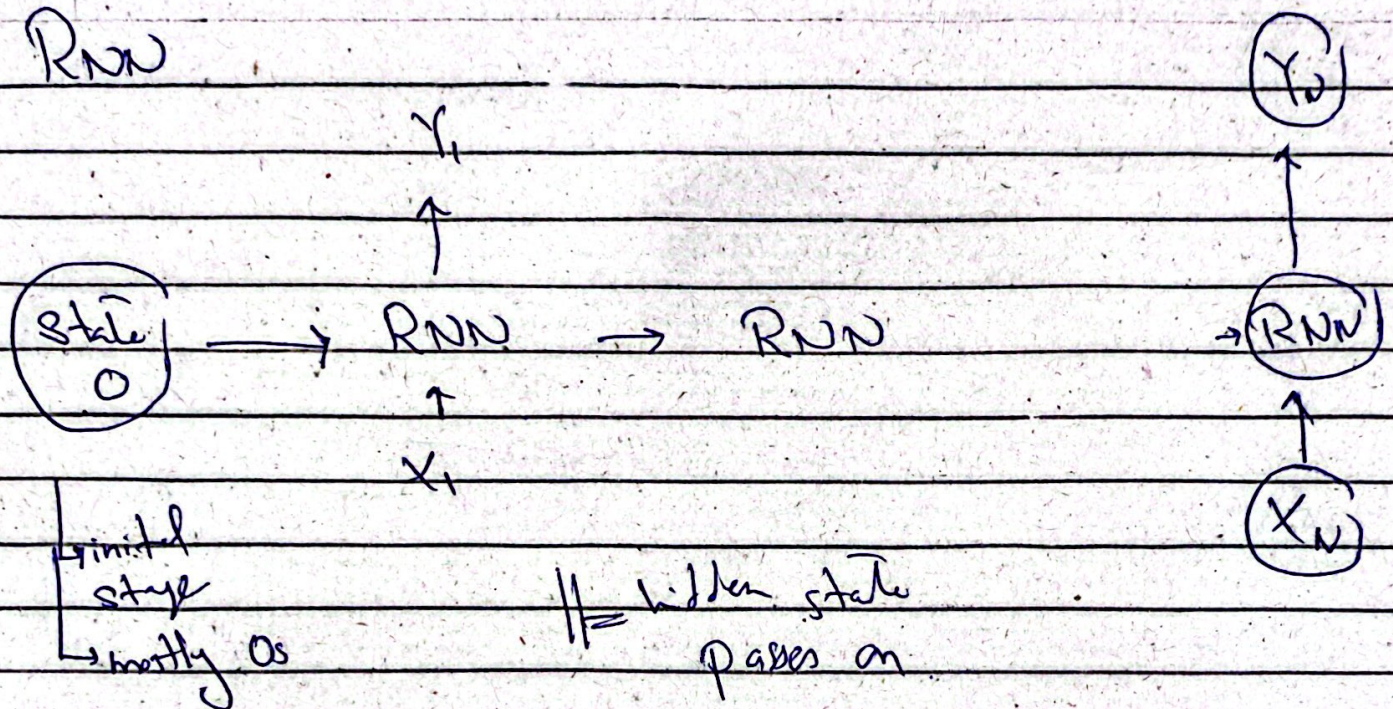 RNN
Y₁
Y_N
State 0
→ RNN → RNN → RNN
X₁
X_N
↳ inital stage
↳ mostly 0s
hidden state
passes on